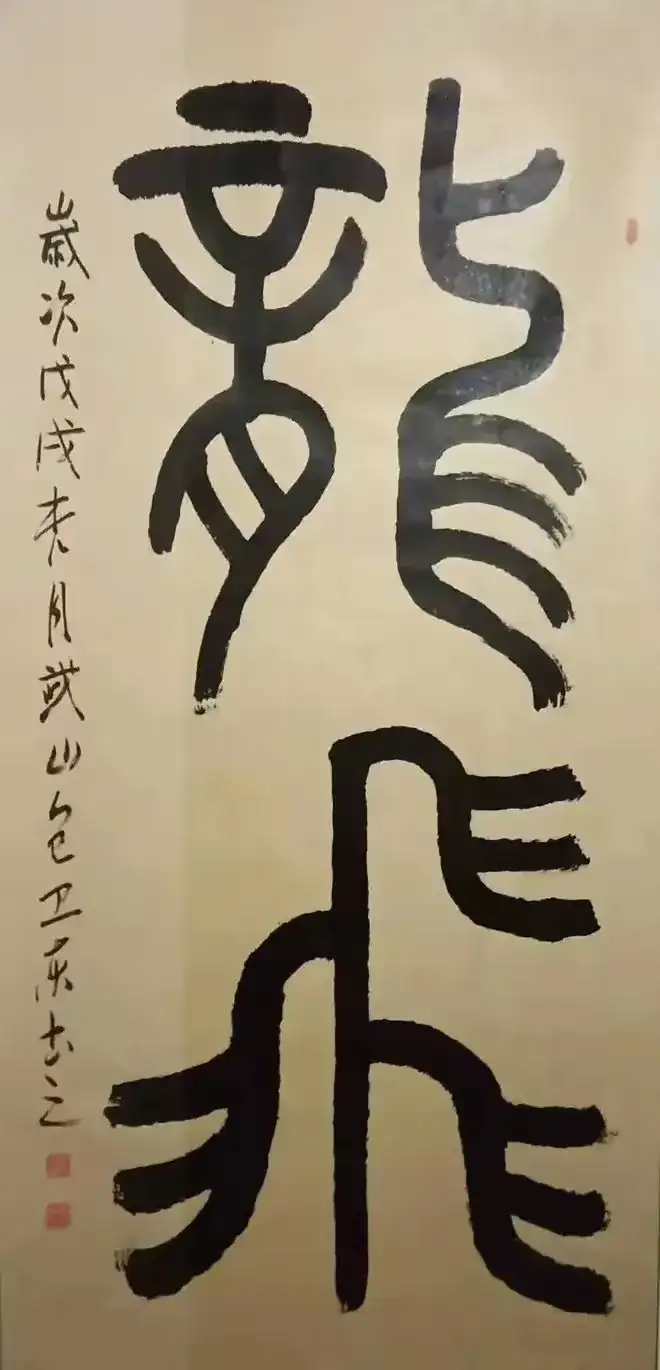 龍飛
歲次戊戌春月武山包卫东书之